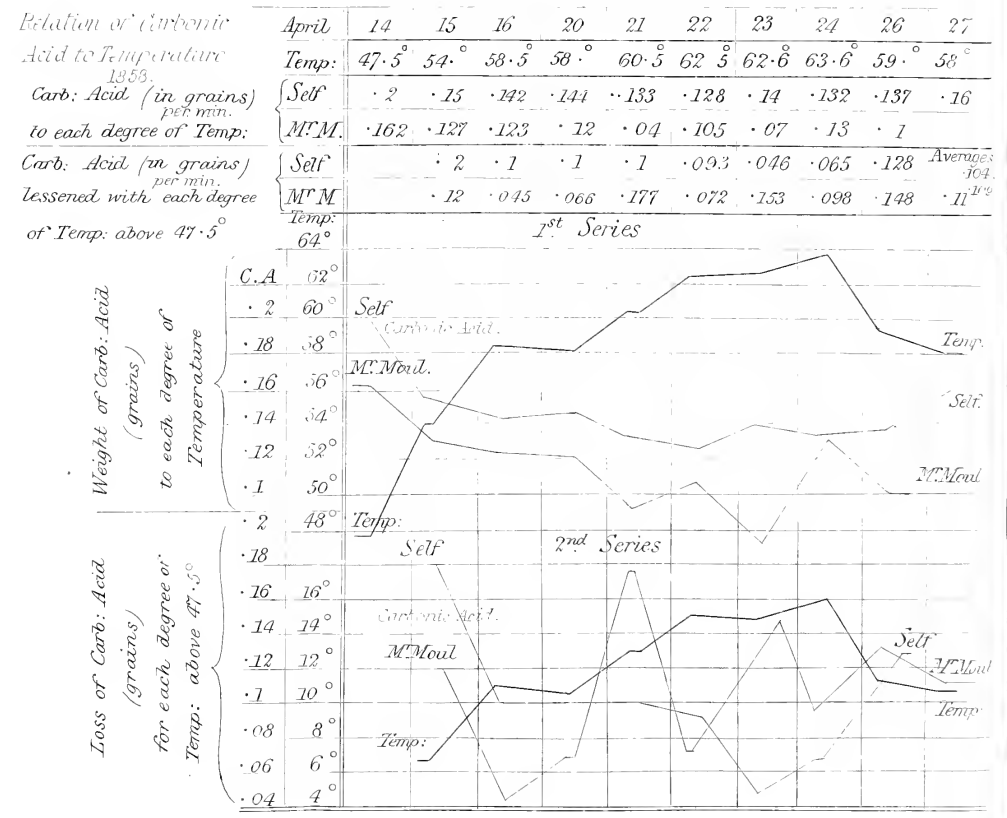 Relation of Carbonic Acid to Temperature 1858.
April 14 15 16 20 21 22 23 24 26 27
Temp: 47·5° 54·° 58·5° 58·° 60·5° 62 5° 62·6° 63·6° 59·° 58°
Carb: Acid (in grains) per min. to each degree of Temp:
Self ·2 ·15 ·142 ·144 ·133 ·128 ·14 ·132 ·137 ·16
Mr M. ·162 ·127 ·123 ·12 ·04 ·105 ·07 ·13 ·1
Carb: Acid (in grains) per min. lessened with each degree of Temp: above 47·5°
Self ·2 ·1 ·1 ·1 ·093 ·046 ·065 ·128 Averages ·104
Mr M ·12 ·045 ·066 ·177 ·072 ·153 ·098 ·148 ·11
Temp:
64°
1st Series
Weight of Carb: Acid
(grains)
to each degree of
Temperature
C.A 62°
·2 60°
·18 58°
·16 56°
·14 54°
·12 52°
·1 50°
·2 48°
Self
Carbonic Acid.
Mr. Moul.
Temp.
Self.
Mr. Moul
Temp:
Loss of Carb: Acid
(grains)
for each degree of
Temp: above 47·5°
·18
·16 16°
·14 14°
·12 12°
·1 10°
·08 8°
·06 6°
·04 4°
Self
2nd Series
Carbonic Acid.
Mr Moul
Temp:
Self
Mr Moul
Temp